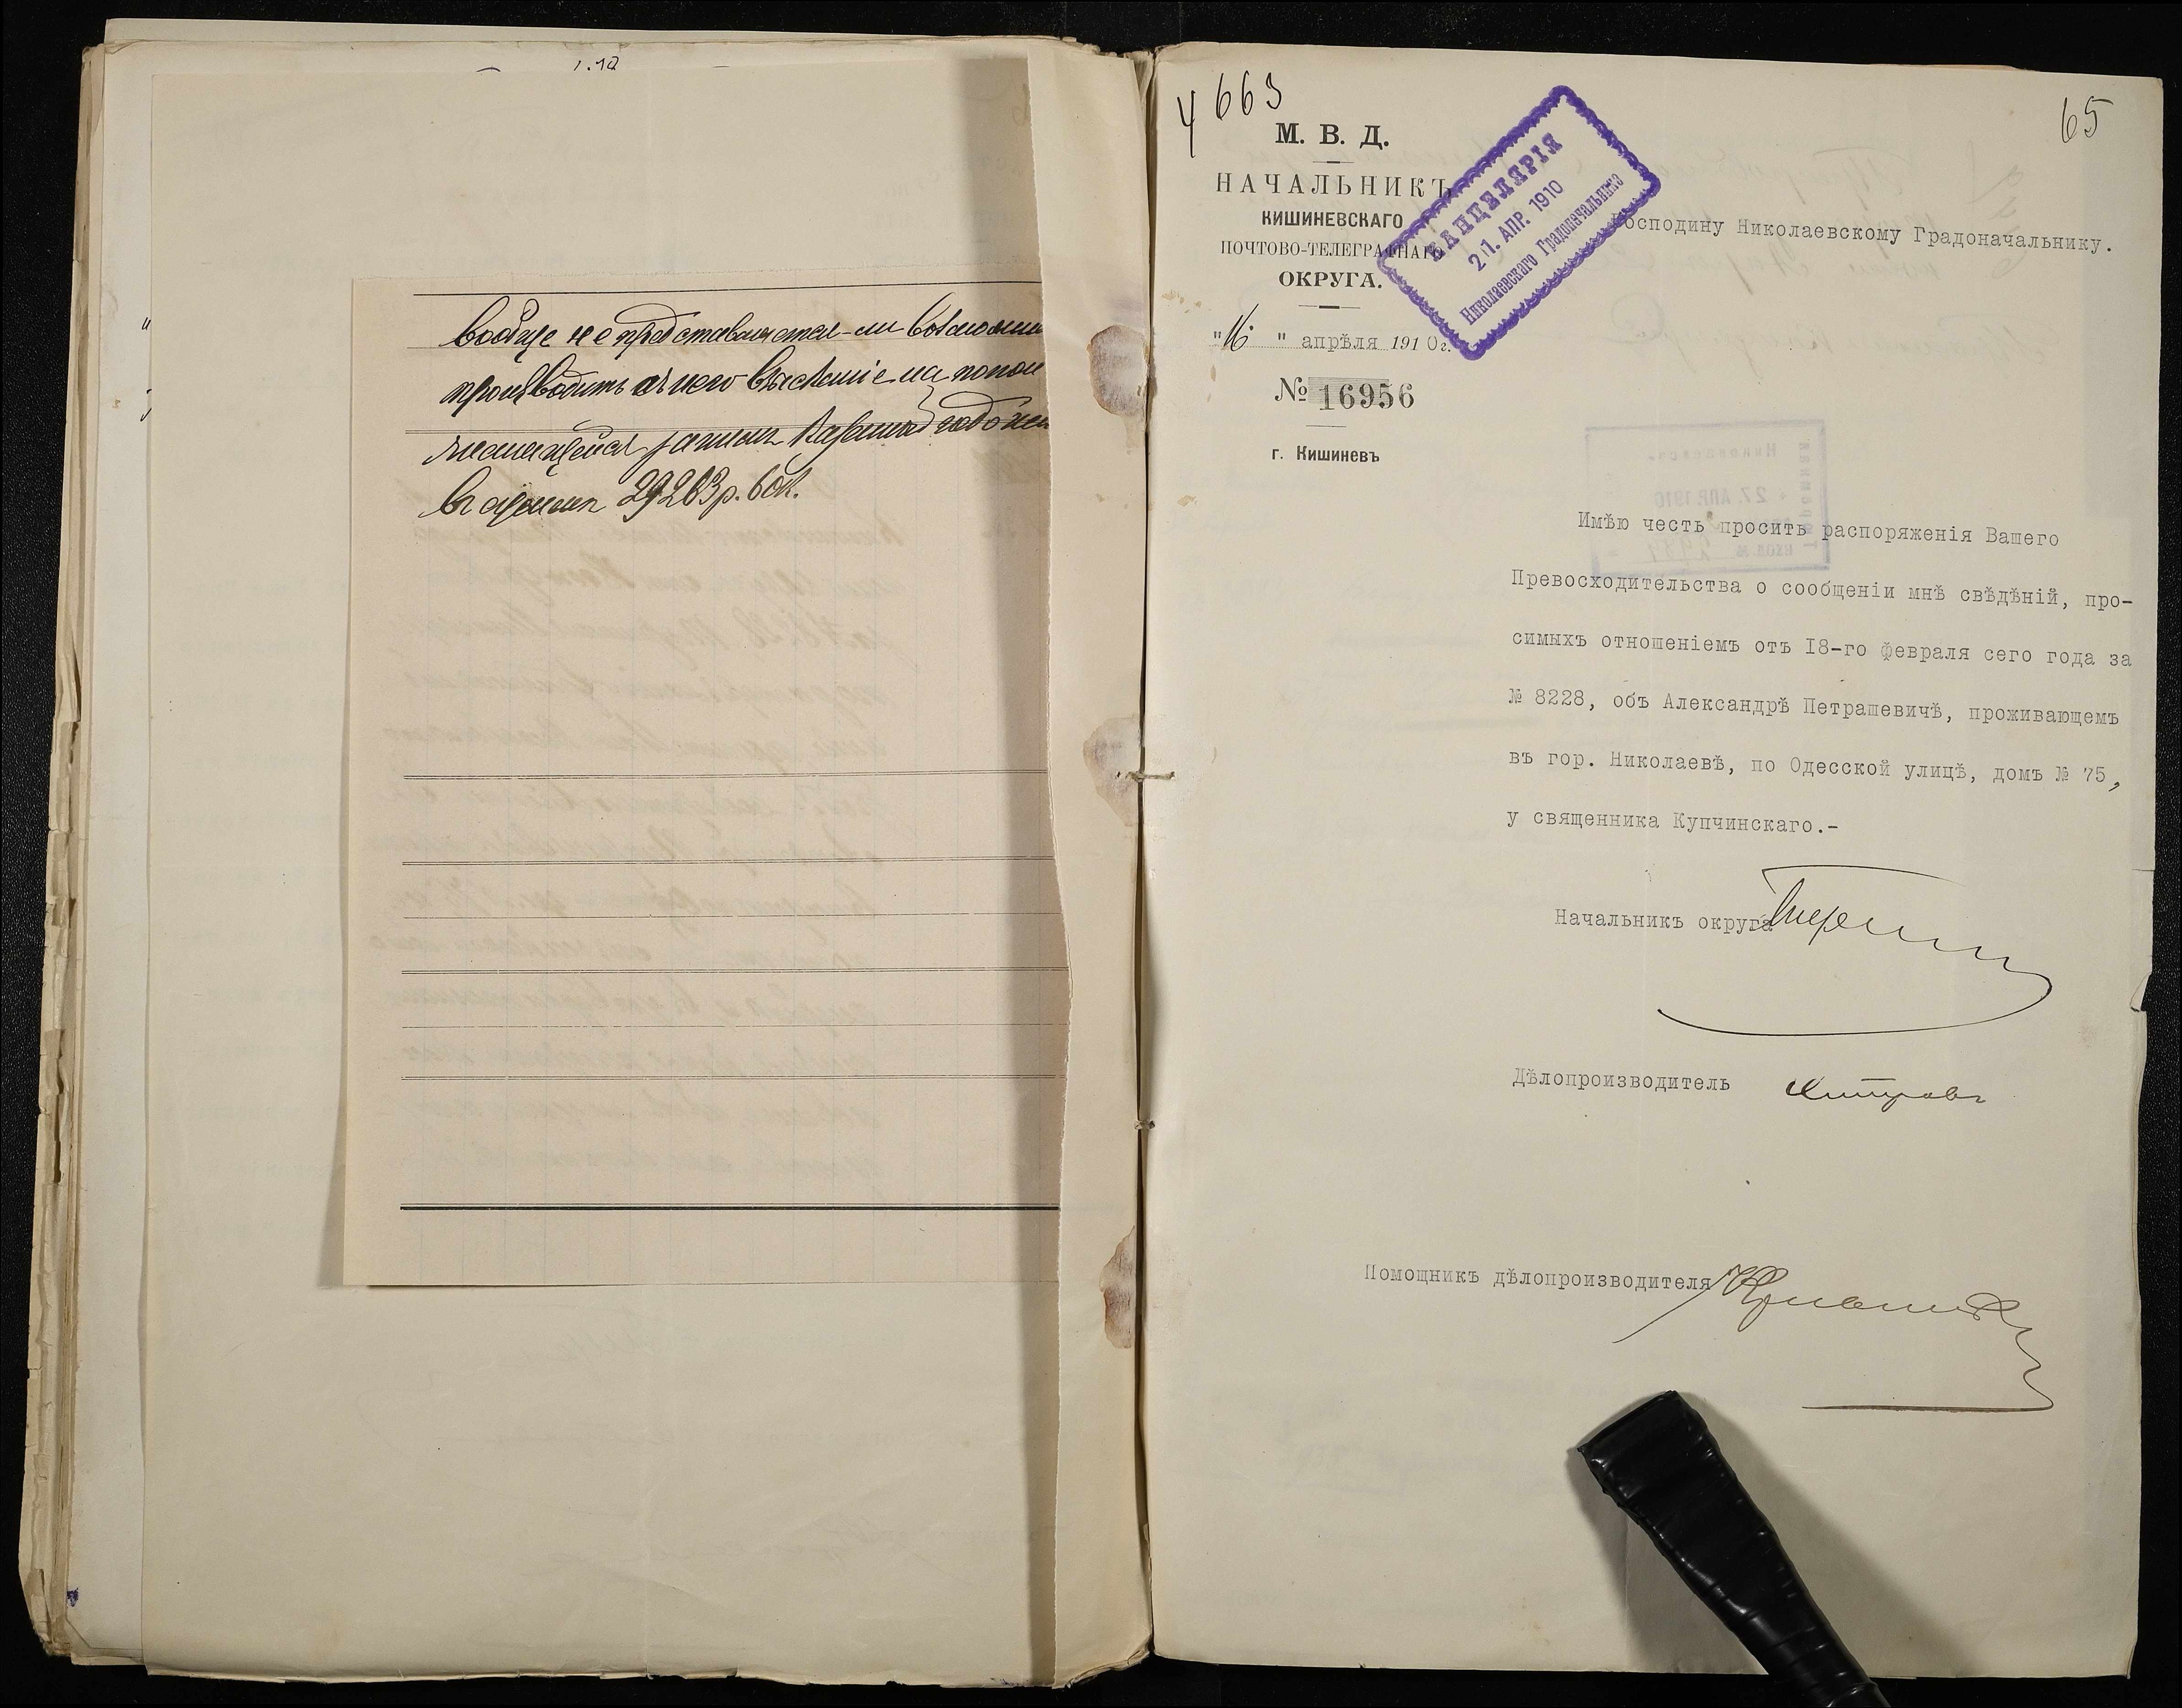 вообще не представляется-ли возможнымъ
производить съ него взысканіе на попол
числящейся за нимъ казенной недоим
въ суммѣ 29263р. 60к.
4663
65
М. В. Д.
НАЧАЛЬНИКЪ
КИШИНЕВСКАГО
ПОЧТОВО-ТЕЛЕГРАФНАГО
ОКРУГА.
"16" апрѣля 1910г.
№ 16956
г. Кишиневъ
КАНЦЕЛЯРІЯ
21. АПР. 1910
Николаевскаго Градоначальника
Господину Николаевскому Градоначальнику.
Имѣю честь просить распоряженія Вашего
Превосходительства о сообщеніи мнѣ свѣдѣній, про-
симыхъ отношеніемъ отъ I8-го февраля сего года за
№ 8228, объ Александрѣ Петрашевичѣ, проживающемъ
въ гор. Николаевѣ, по Одесской улицѣ, домъ № 75,
у священника Купчинскаго.-
Начальникъ округа
Дѣлопроизводитель
Помощникъ дѣлопроизводителя